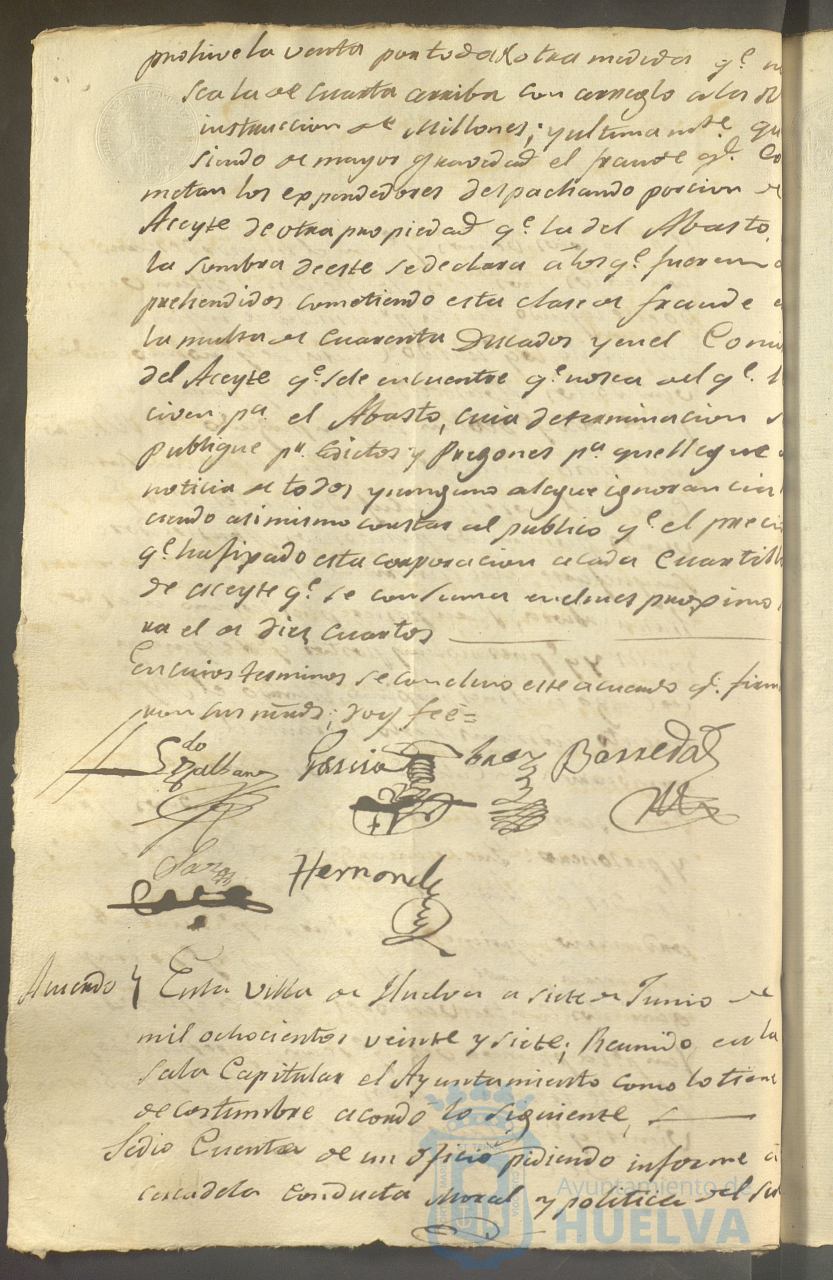 prohive la venta por toda otra medida q.e n
sea la de cuarta arriba con arreglo a las
instruccion de Millones; y ultimam.te qu
siendo de mayor gravedad el fraude q.e co
metan los expendedores despachando porcion de
Aceyte de otra propiedad q.e la del Abasto
la sombra de este se declara á los q.e fueren a
prehendidos cometiendo esta clase de fraude
la multa de cuarenta Ducados y en el Comi
del Aceyte q.e se le encuentre q.e no sea del q.e
civen p.a el Abasto, cuia determinacion s
publique p.r Edictos y Pregones p.a que llegue
noticia de todos y ninguno alegue ignorancia
ciendo asimismo constar al publico q.e el preci
q.e ha fixado esta corporacion a cada Cuartill
de aceyte q.e se consuma en el mes proximo
ra el de diez cuartos
En cuios terminos se concluyo este acuerdo q.e firm
ron sus mrds; doy fée=
Garcia Barreda
Hernand
Acuerdo } En la Villa de Huelva a siete de Junio de
mil ochocientos veinte y siete; Reunido en la
Sala Capitular el Ayuntamiento como lo tiene
de costumbre acordo lo siguiente,
Se dio Cuenta de un oficio pidiendo informe a
cerca de la conducta Moral y politica del
Ayuntamiento de
HUELVA